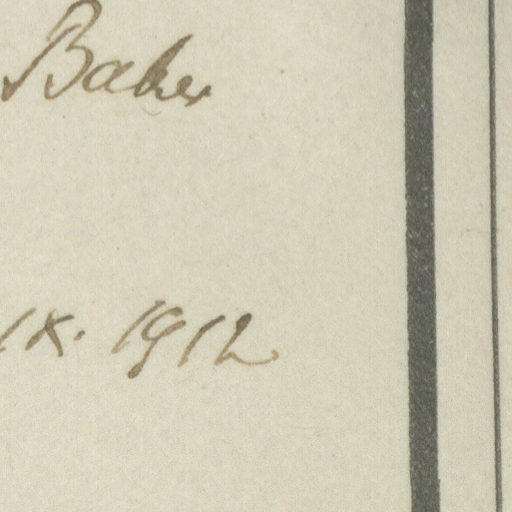 Baker
IX. 1912